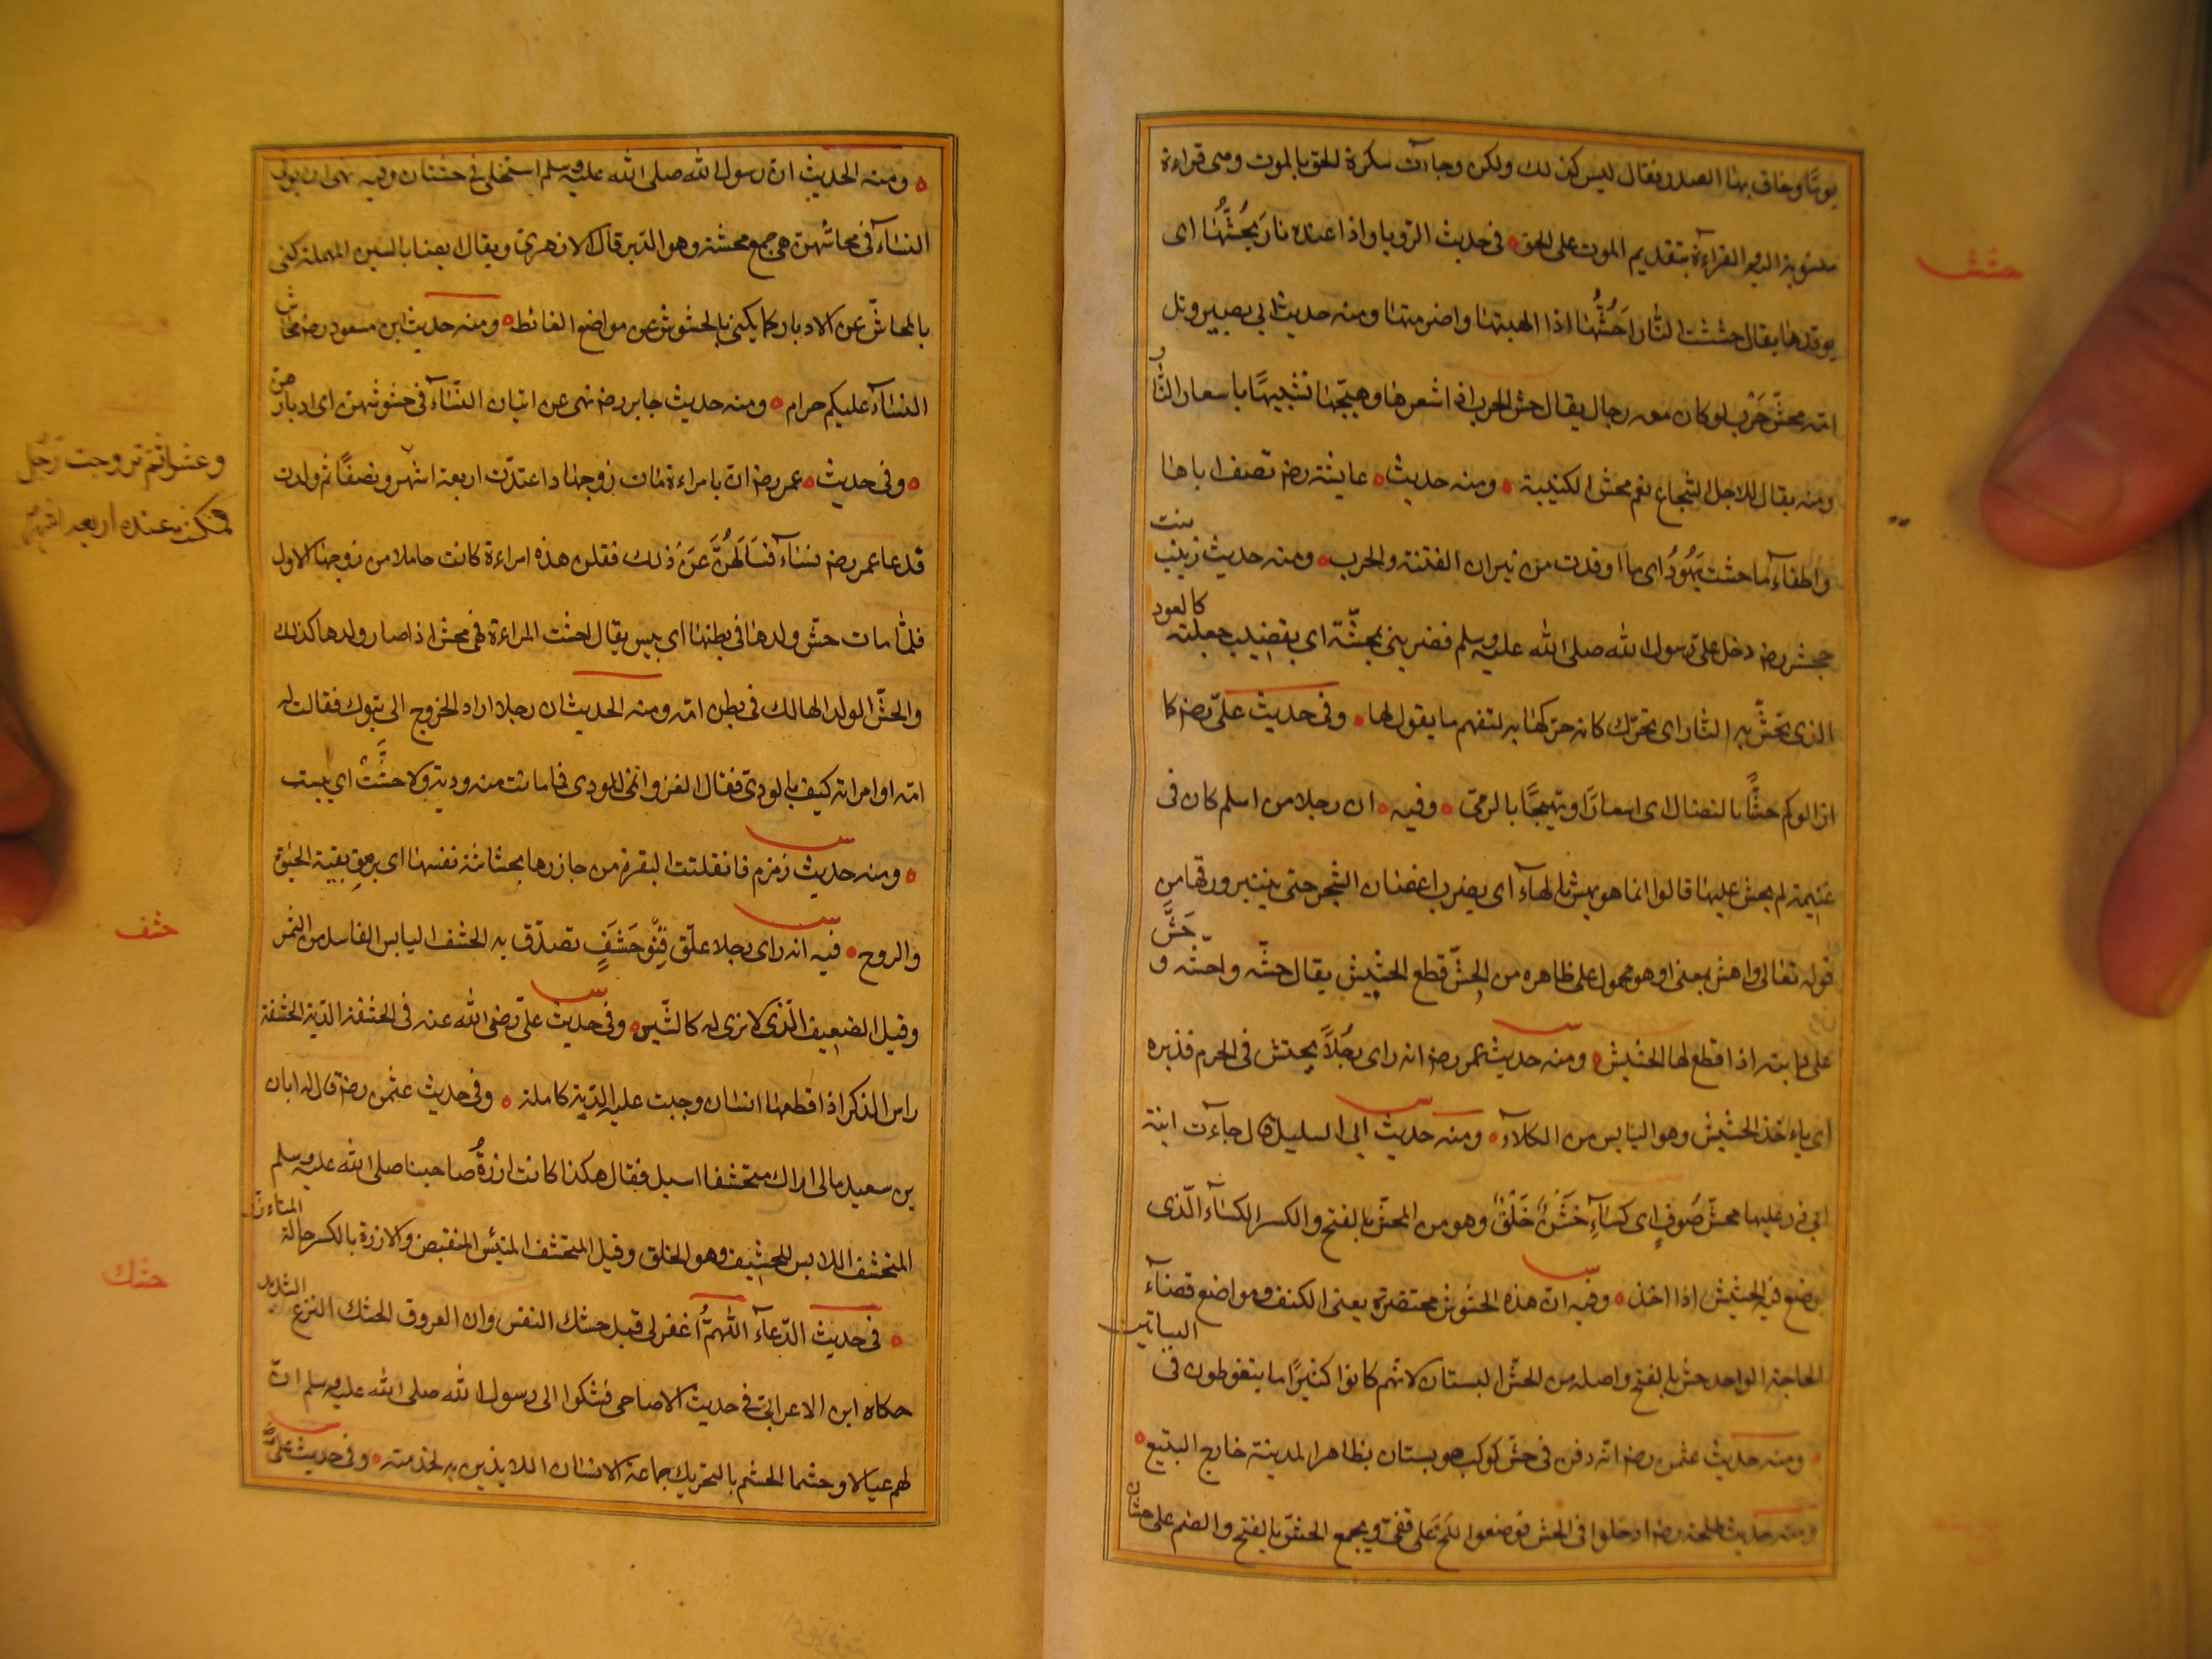 يومًا وضاق بها الصدر فقال ليس كذلك ولكن وجاءت سكرة الحق بالموت وهى قراءة
منسوبة اليه القراءة بتقديم الموت على الحق ه فى حديث الرؤيا واذا عنده نار يَحُشُّهَا اى
حشش
يوقدها يقال حششت النار اَحُشُّهَا اذا الهبتها واضرمتها ومنه حديث ابى بصير ويل
امه محشّ حَرْب لو كان معه رجال يقال حش الحرب اذا اشعرها وهيّجها تشبيهًا باسعار النَّار
ومنه يقال للرجل الشجاع نعم محش الكتيبة ه ومنه حديث ه عايشة رضه تصف اباها
واطفاء ما حشت يَهُودُ اى ما اوقدت من نيران الفتنة والحرب ه ومنه حديث زينب بنت
جحش رضه دخل علىّ رسول الله صلى الله عليه وسلم فضربنى بمحشّة اى بقضيب جعلته كالعود
الذى تحشّ به النار اى تحرّك كانه حركها به لتفهم ما يقول لها ه وفى حديث علىّ رضه كا
ازالوكم حشًّا بالنصال اى اسعارًا وتهييجًا بالرمى ه وفيه ه ان رجلا من اسلم كان فى
غنيمة له يحش عليها قالوا انما هو يهش بالهاء اى يضرب اغصان الشجر حتى ينتثر ورقها من
قوله تعالى واهش بمعنى او هو محمول على ظاهره من الحشّ قطع الحشيش يقال حشّه واحشّه و حَشَّ
على دابته اذا قطع لها الحشيش ه ومنه حديث عمر رضه انه راى رجُلاً يحتش فى الحرم فذبره
اى ياءخذ الحشيش وهو اليابس من الكلاء ه ومنه حديث ابى السليل قال جاءت ابنة
ابى ذر عليها محشّ صُوفٍ اى كساءٍ خَشَنٌ خَلَقٌ وهو من المحشّ بالفتح والكسر الكساء الّذى
يوضع فيه الحشيش اذا اخذ ه وفيه انّ هذه الحشوش محتضرة يعنى الكنف ومواضع قضاء
الحاجة الواحد حش بالفتح واصله من الحشّ البستان لانهم كانوا كثيرًا ما يتغوطون فى البساتين
ومنه حديث عثمن رضه انّه دفن فى حشّ كوكب هو بستان بظاهر المدينة خارج البقيع ه
ومنه حديث طلحة رضه ادخلوا فى الحش فوضعوا اللّج على قفىّ ويجمع الحشّ بالفتح والضم على حشان
ه ومنه الحديث انّ رسول الله صلى الله عليه وسلم استخلى فى حشان وفيه نهى ان يؤتى
النساء فى محاشّهنّ هى جمع محشة وهو الدبر قال الازهرى ويقال ايضا بالسين المهملة كنى
بالمحاشّ عن الادبار كما يكنى بالحشوش عن مواضع الغائط ه ومنه حديث ابن مسعود رضه محاش
النساء عليكم حرام ه ومنه حديث جابر رضه نهى عن اتيان النّساء فى حشوشهن اى ادبارهنّ
ه وفى حديث ه عمر رضه ان بامراءة مات زوجها واعتدّت اربعة اشهر ونصفًا ثم ولدت
وعشرا ثم تزوجت رَجُل
فمكثت عنده اربعة اشهر
فدعا عمر رضه نساء فَسَاَلَهُنَّ عَنْ ذلك فقلن هذه امراءة كانت حاملا من زوجها الاول
فلمّا مات حشّ ولدها فى بطنها اى يبس يقال احشت المراءة فهى محش اذا صار ولدها كذلك
والحشّ الولد الهالك فى بطن امّه ومنه الحديث ان رجلا اراد الخروج الى تبوك فقالت له
امّه او امراته كيف بالودىّ فقال الغزو انمى للودى فما ماتت منه ودية ولا حشَّتْ اى يبست
ه ومنه حديث زمزم فانفلتت البقرة من جازرها بحشاشة نفسها اى برمق بقية الحيوة
والروح ه فيه انه راى رجلا علّق قِنْو حَشَفٍ تصدّق به الحشف اليابس الفاسد من الثمر
حشف
وقيل الضعيف الّذى لا نوى له كالشّيص ه وفى حديث علىّ رضى الله عنه فى الحشفة الدّية الحشفة
راس الذكر اذا قطعها انسان وجبت عليه الدّية كاملة ه وفى حديث عثمن رضه قال له ابان
بن سعيد مالى اراك متحشفا اسبل فقال هكذا كانت ازرةُ صاحبنا صلى الله عليه وسلم
المتحشف اللابس للحشيف وهو الخلق وقيل المتحشف المبتئس المتقبض والازرة بالكسر حالة
ه فى حديث الدّعاء اللّٰهمُّ اغفر لى قبل حشك النفس وان العروق الحشك النزع الشديد
حشك
حكاه ابن الاعرابىّ فى حديث الاضاحى فشكوا الى رسول الله صلى الله عليه وسلم انّ
لهم عيالا وحشما الحشم بالتحريك جماعة الانسان اللايذين به لخدمته ه وفى حديث علىّ